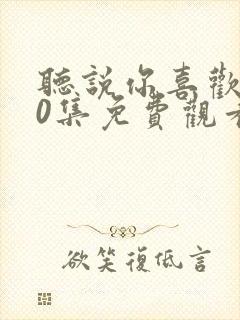 聽說你喜歡
0集免費觀看
欲笑復低言